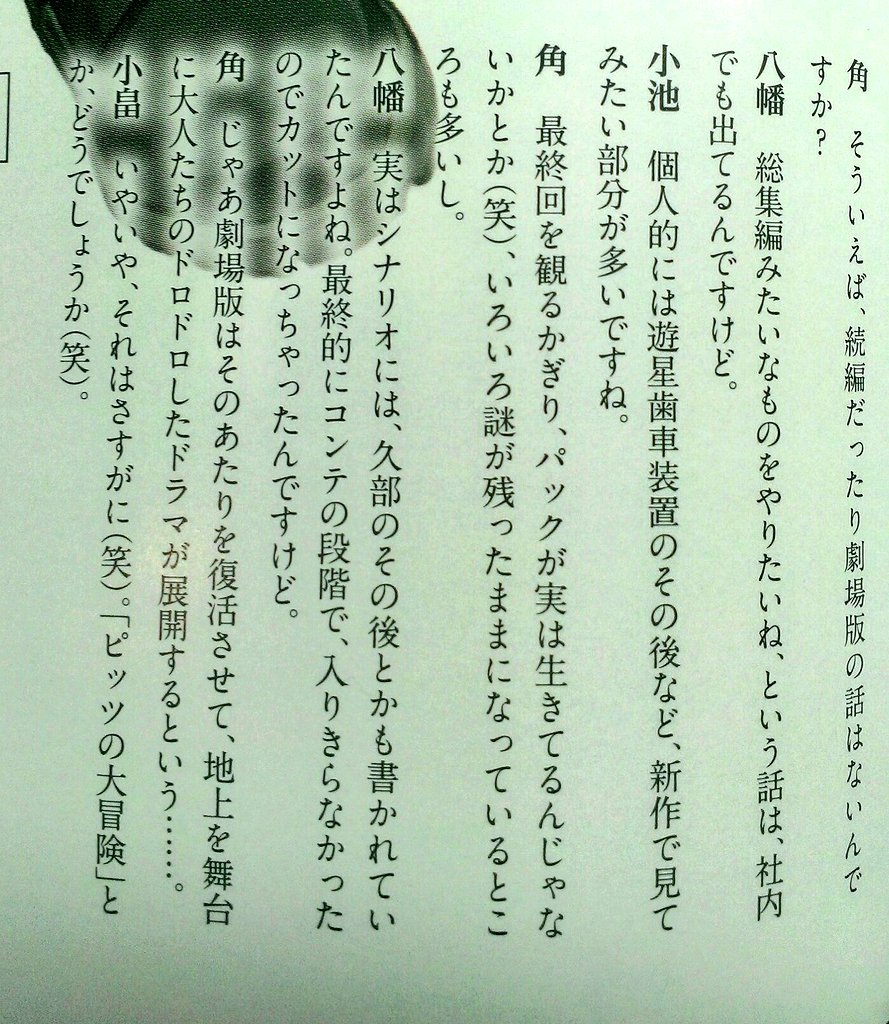 角　そういえば、続編だったり劇場版の話はないんで
すか？
八幡　総集編みたいなものをやりたいね、という話は、社内
でも出てるんですけど。
小池　個人的には遊星歯車装置のその後など、新作で見て
みたい部分が多いですね。
角　最終回を観るかぎり、パックが実は生きてるんじゃな
いかとか（笑）、いろいろ謎が残ったままになっているとこ
ろも多いし。
八幡　実はシナリオには、久部のその後とかも書かれてい
たんですよね。最終的にコンテの段階で、入りきらなかった
のでカットになっちゃったんですけど。
角　じゃあ劇場版はそのあたりを復活させて、地上を舞台
に大人たちのドロドロしたドラマが展開するという……。
小畠　いやいや、それはさすがに（笑）。「ピッツの大冒険」と
か、どうでしょうか（笑）。